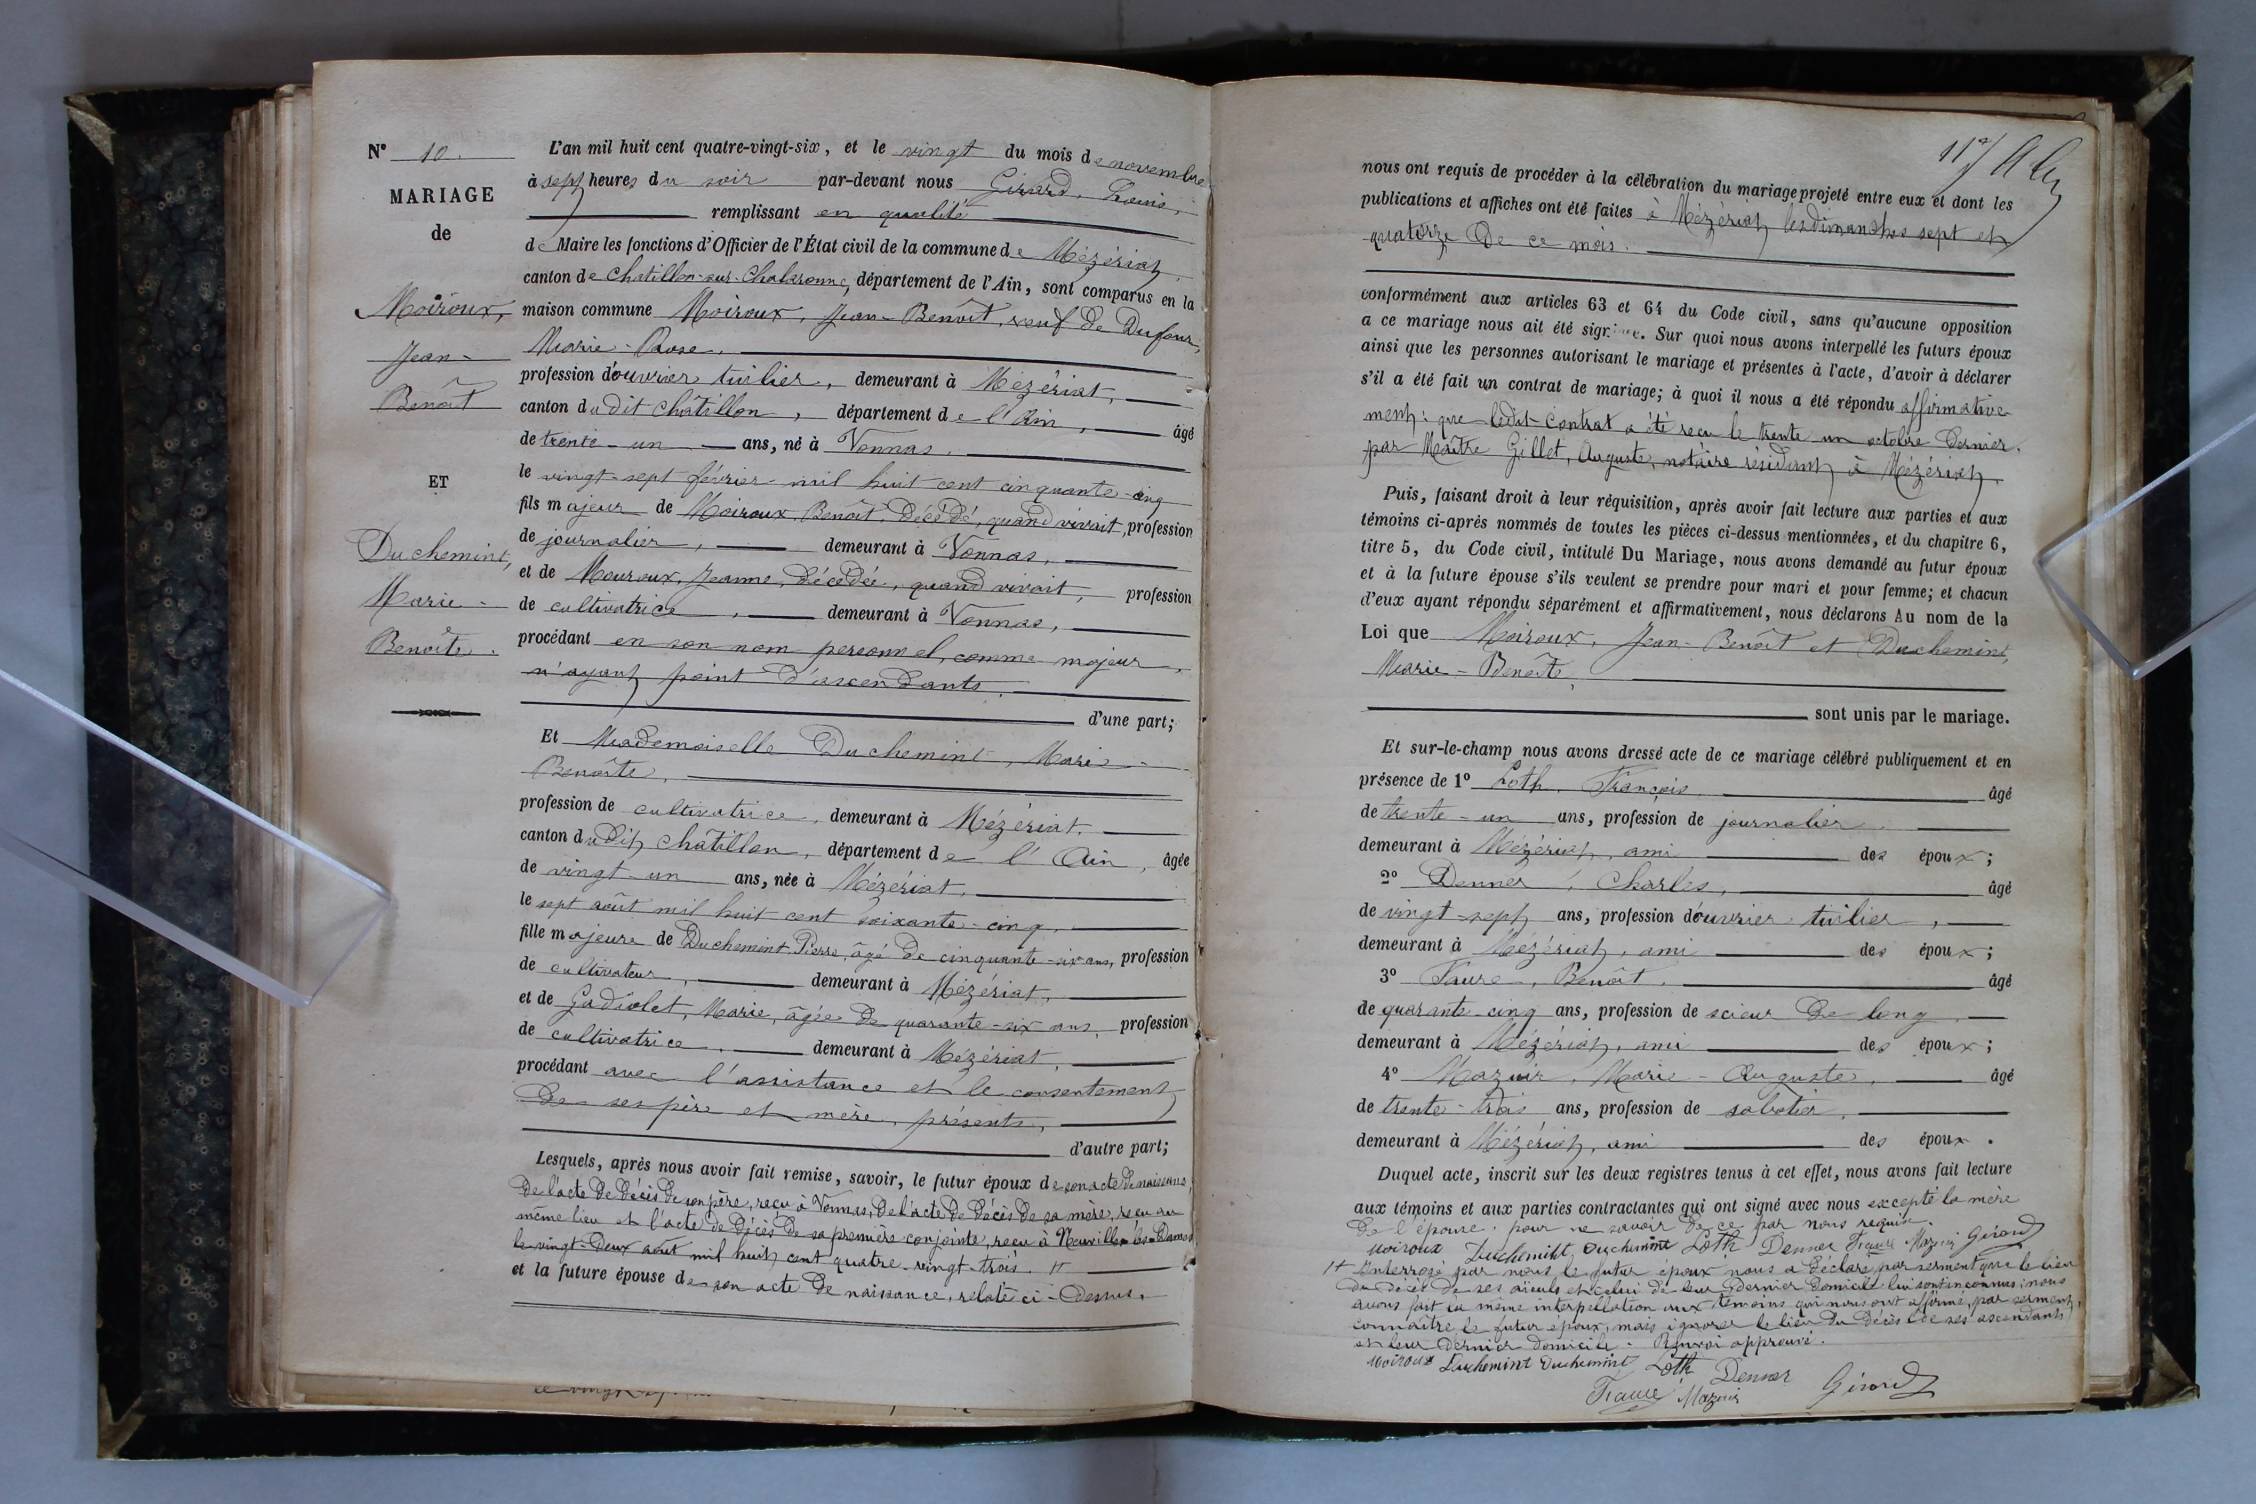 N° 10.
MARIAGE
de
Moiroux,
Jean-
Benoît
ET
Duchemint,
Marie-
Benoîte.
L'an mil huit cent quatre-vingt-six, et le vingt du mois de novembre
à sept heures du soir par-devant nous Girard, Louis,
remplissant en qualité
de Maire les fonctions d'Officier de l'État civil de la commune de Mézériat,
canton de Chatillon-sur-Chalaronne, département de l'Ain, sont comparus en la
maison commune Moiroux, Jean-Benoît, veuf de Dufour,
Marie-Rose,
profession d'ouvrier tuilier, demeurant à Mézériat,
canton dudit Châtillon, département de l'Ain, âgé
de trente-un ans, né à Vonnas,
le vingt-sept février mil huit cent cinquante-cinq
fils majeur de Moiroux, Benoît, décédé, quand vivait, profession
de journalier, demeurant à Vonnas,
et de Mouroux, Jeanne, décédée, quand vivait, profession
de cultivatrice, demeurant à Vonnas,
procédant en son nom personnel, comme majeur,
n'ayant point d'ascendants,
d'une part;
Et Mademoiselle Duchemint, Marie-
Benoîte,
profession de cultivatrice, demeurant à Mézériat,
canton dudit Châtillon, département de l'Ain, âgée
de vingt-un ans, née à Mézériat,
le sept août mil huit cent soixante-cinq,
fille majeure de Duchemint Pierre, âgé de cinquante-six ans, profession
de cultivateur, demeurant à Mézériat,
et de Gadiolet, Marie, âgée de quarante-six ans, profession
de cultivatrice, demeurant à Mézériat,
procédant avec l'assistance et le consentement
de ses père et mère, présents,
d'autre part;
Lesquels, après nous avoir fait remise, savoir, le futur époux de son acte de naissance,
de l'acte de décès de son père, reçu à Vonnas, de l'acte de décès de sa mère, reçu au
même lieu et l'acte de décès de sa première conjointe, reçu à Neuville-les-Dames
le vingt-deux août mil huit cent quatre-vingt-trois. #
et la future épouse de son acte de naissance, relaté ci-dessus.
nous ont requis de procéder à la célébration du mariage projeté entre eux et dont les
publications et affiches ont été faites à Mézériat les dimanches sept et
quatorze de ce mois.
conformément aux articles 63 et 64 du Code civil, sans qu'aucune opposition
a ce mariage nous ait été signifiée. Sur quoi nous avons interpellé les futurs époux
ainsi que les personnes autorisant le mariage et présentes à l'acte, d'avoir à déclarer
s'il a été fait un contrat de mariage; à quoi il nous a été répondu affirmative-
ment: que ledit contrat a été reçu le trente un octobre dernier,
par Maître Gillet, Auguste, notaire résidant à Mézériat.
Puis, faisant droit à leur réquisition, après avoir fait lecture aux parties et aux
témoins ci-après nommés de toutes les pièces ci-dessus mentionnées, et du chapitre 6,
titre 5, du Code civil, intitulé Du Mariage, nous avons demandé au futur époux
et à la future épouse s'ils veulent se prendre pour mari et pour femme; et chacun
d'eux ayant répondu séparément et affirmativement, nous déclarons Au nom de la
Loi que Moiroux, Jean-Benoît et Duchemint,
Marie-Benoîte,
sont unis par le mariage.
Et sur-le-champ nous avons dressé acte de ce mariage célébré publiquement et en
présence de 1° Loth, François âgé
de trente-un ans, profession de journalier
demeurant à Mézériat, ami des époux;
2° Denner, Charles, âgé
de vingt-sept ans, profession d'ouvrier tuilier,
demeurant à Mézériat, ami des époux;
3° Faure, Benoît, âgé
de quarante-cinq ans, profession de scieur de long
demeurant à Mézériat, ami des époux;
4° Mazuir, Marie-Auguste, âgé
de trente-trois ans, profession de sabotier,
demeurant à Mézériat, ami des époux.
Duquel acte, inscrit sur les deux registres tenus à cet effet, nous avons fait lecture
aux témoins et aux parties contractantes qui ont signé avec nous excepté la mère
de l'épouse, pour ne savoir de ce par nous requise.
Moiroux Duchemint Duchemint Loth Denner Faure Mazuir Girard
# Interrogé par nous le futur époux nous a déclaré par serment que le lieu
du décès de ses aïeuls et celui de leur dernier domicile lui sont inconnus; nous
avons fait la même interpellation aux témoins qui nous ont affirmé, par serment,
connaître le futur époux, mais ignorer le lieu du décès de ses ascendants
et leur dernier domicile. Renvoi approuvé.
Moiroux Duchemint Duchemint Loth Denner
Faure Mazuir Girard